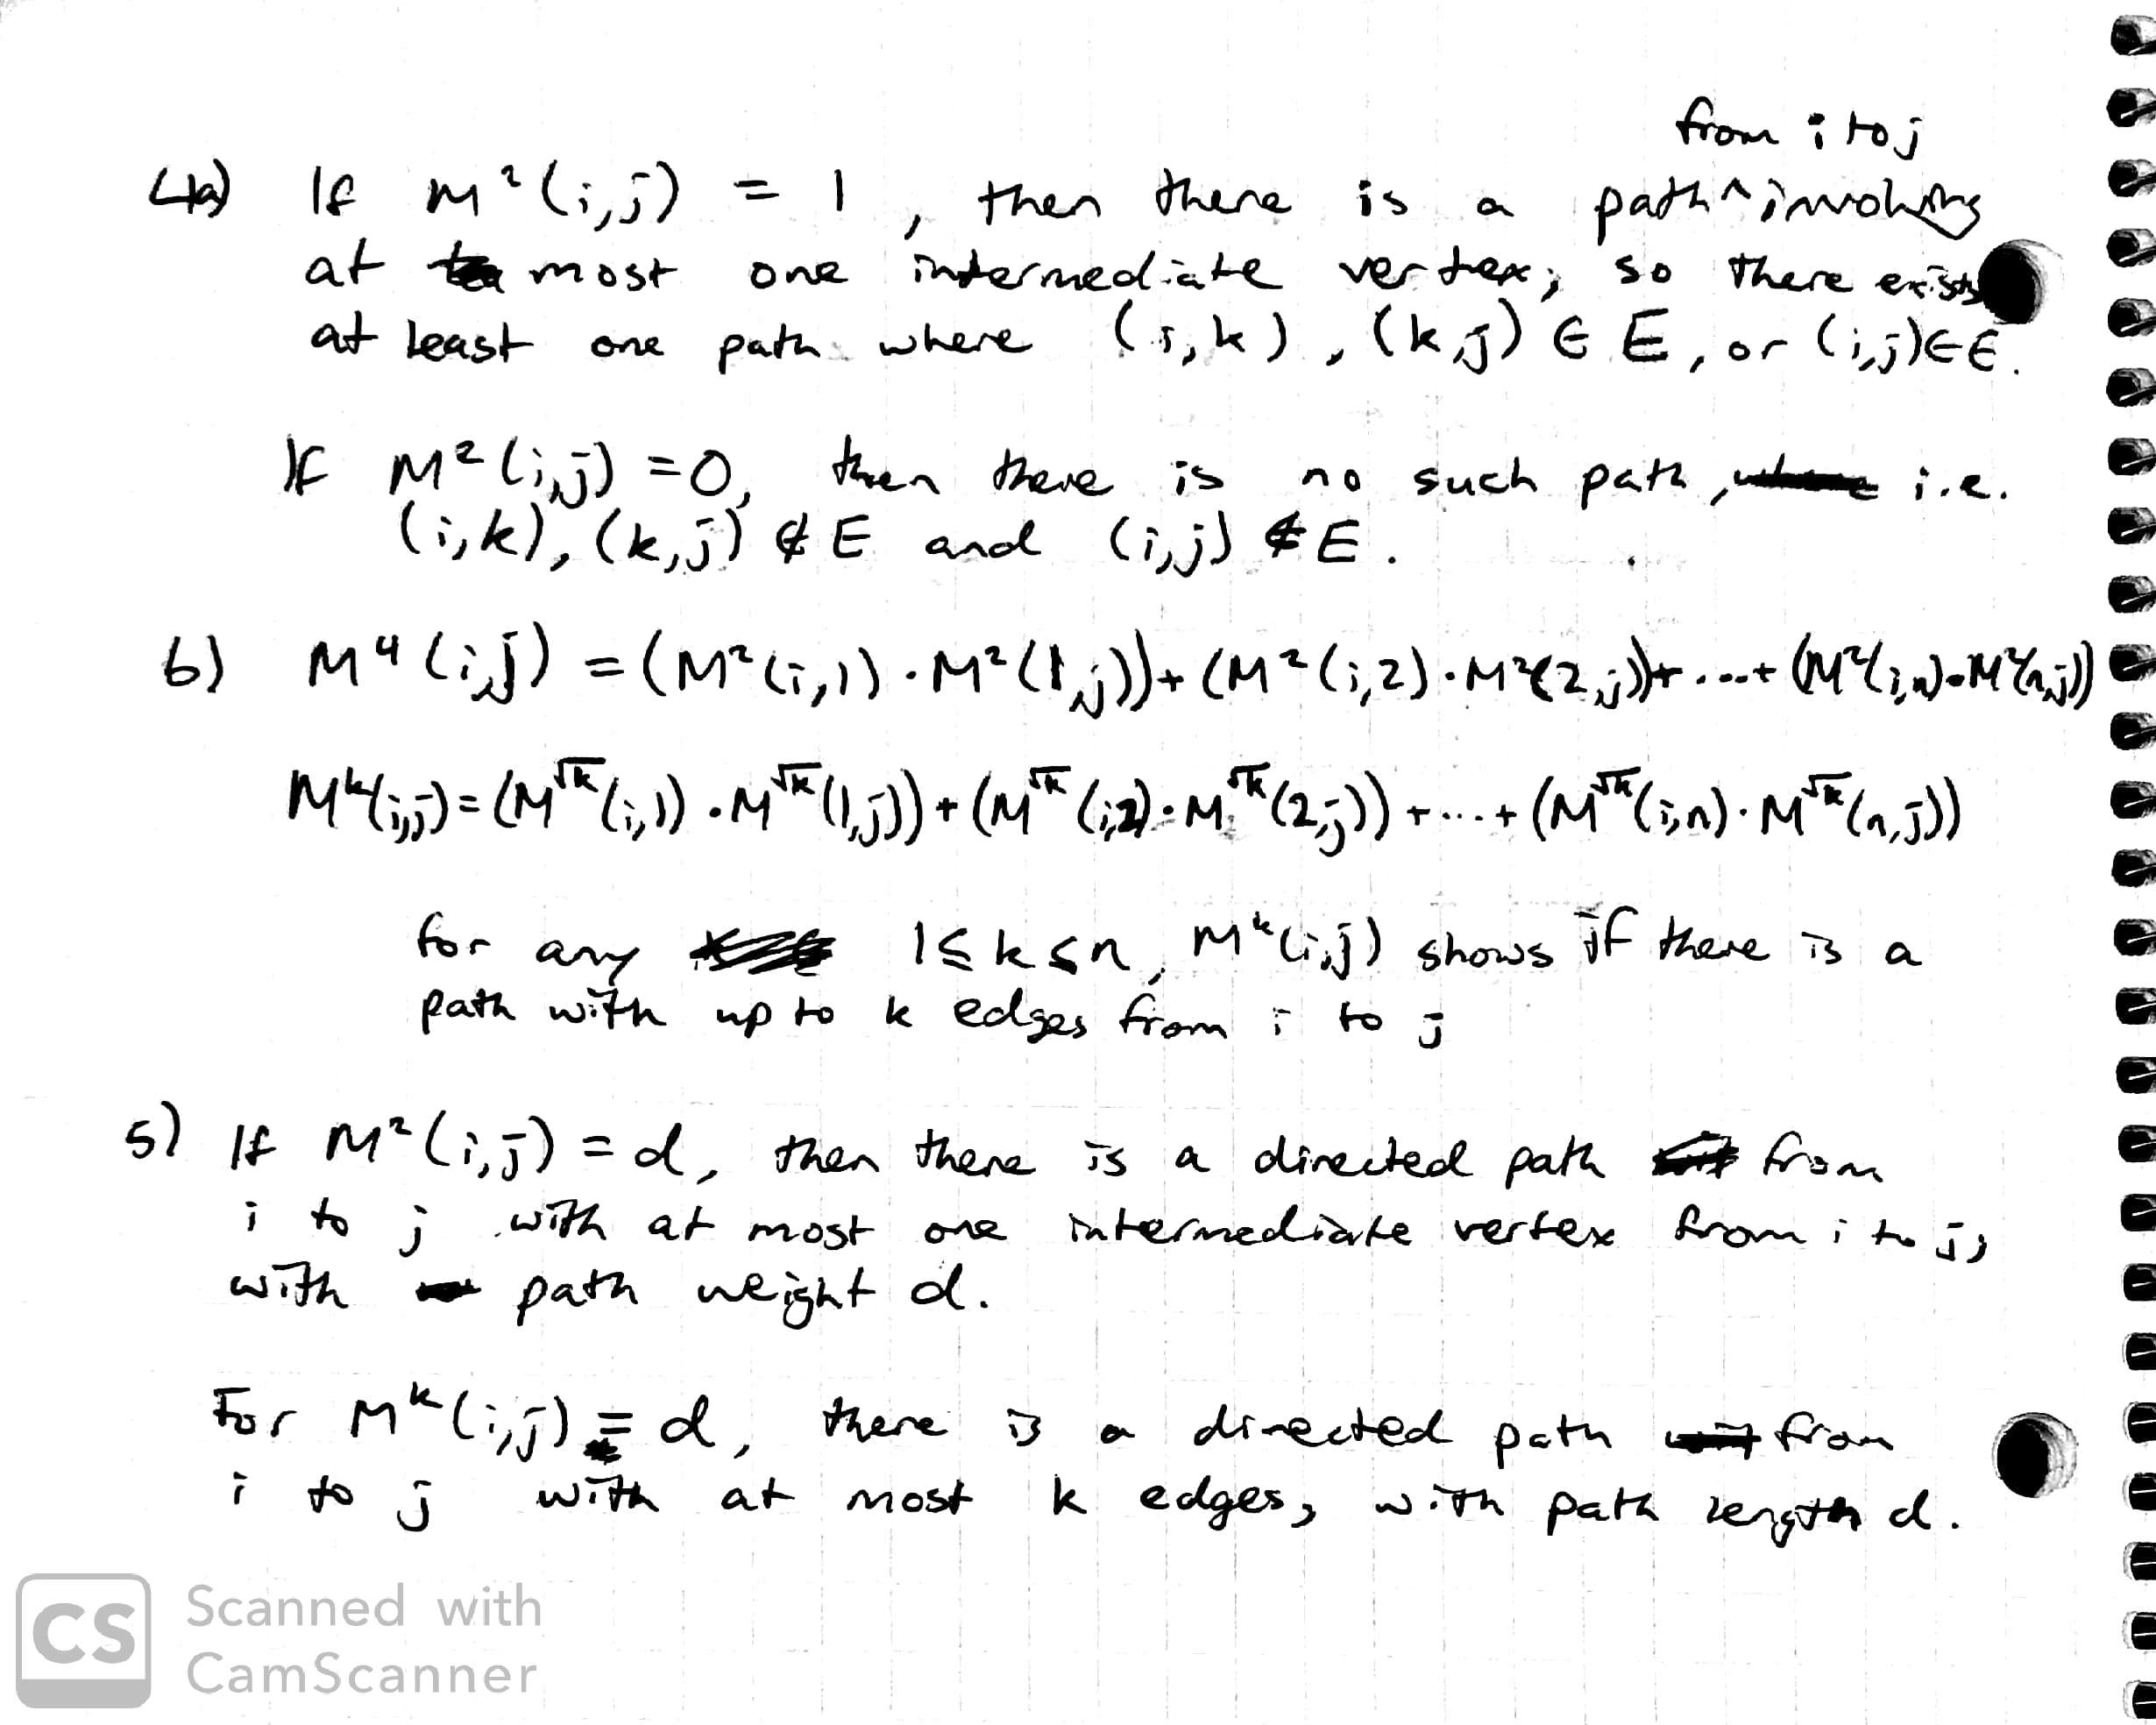 from i to j
4a) If M²(i,j) = 1, then there is a path ^ involving
at most one intermediate vertex, so there exists
at least one path where (i,k), (k,j) ∈ E, or (i,j) ∈ E.
If M²(i,j) = 0, then there is no such path, i.e.
(i,k), (k,j) ∉ E and (i,j) ∉ E.
b) M⁴(i,j) = (M²(i,1) · M²(1,j)) + (M²(i,2) · M²(2,j)) + ... + (M²(i,n) · M²(n,j))
M^k(i,j) = (M^√k(i,1) · M^√k(1,j)) + (M^√k(i,2) · M^√k(2,j)) + ... + (M^√k(i,n) · M^√k(n,j))
for any 1 ≤ k ≤ n, M^k(i,j) shows if there is a
path with up to k edges from i to j
5) If M²(i,j) = d, then there is a directed path from
i to j with at most one intermediate vertex from i to j,
with path weight d.
For M^k(i,j) = d, there is a directed path from
i to j with at most k edges, with path length d.
CS Scanned with
CamScanner